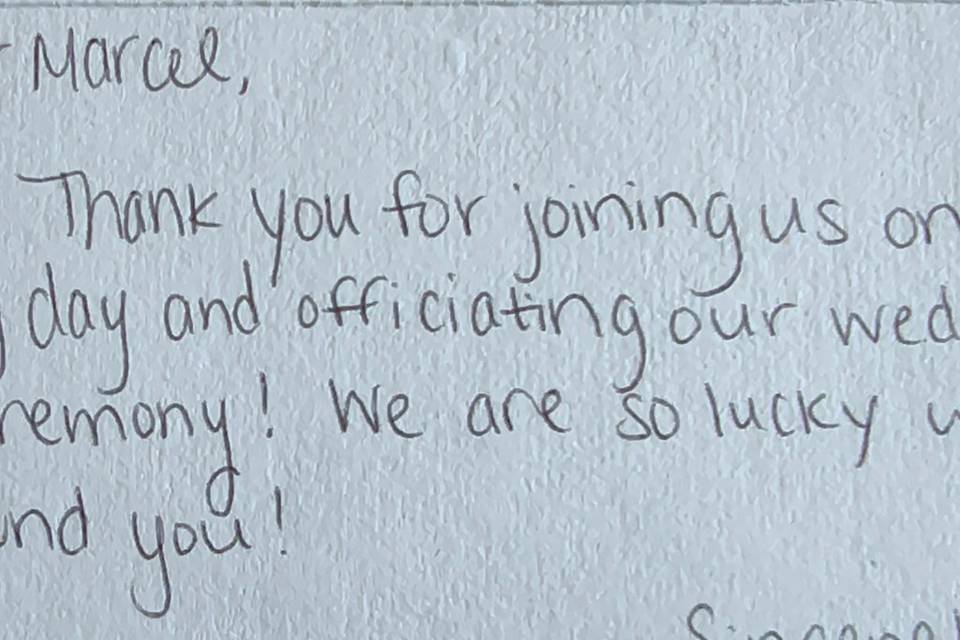 Marcel,
Thank you for joining us on
day and officiating our wed
remony! We are so lucky
nd you!